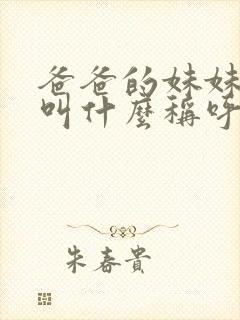 爸爸的妹妹
叫什麼稱呼
朱春貴